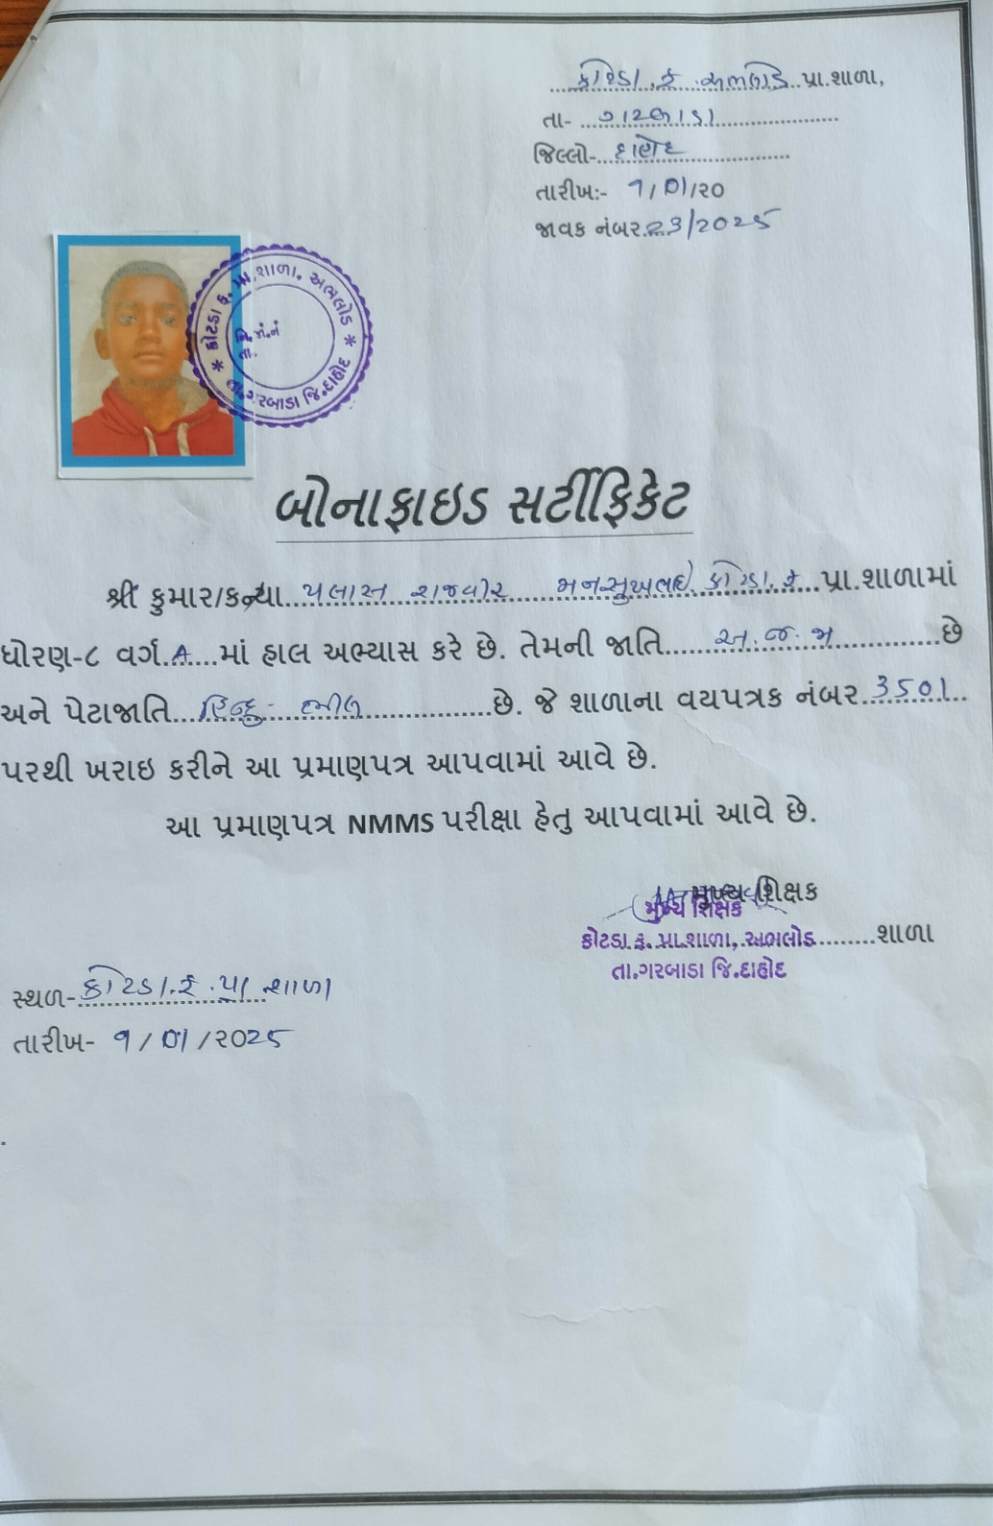 કોટડા. ક. અભલોડ પ્રા.શાળા,
તા- ગરબાડા
જિલ્લો- દાહોદ
તારીખ:- ૧/૦૧/૨૦
જાવક નંબર.23/2025
* કોટડા ક. પ્રા.શાળા. અભલોડ *
તા.ગરબાડા જિ.દાહોદ
તા.
બોનાફાઇડ સર્ટીફિકેટ
શ્રી કુમાર/કન્યા પલાસ રાજવીર મનસુખભાઈ કોટડા. ક. પ્રા.શાળામાં
ધોરણ-૮ વર્ગ. A માં હાલ અભ્યાસ કરે છે. તેમની જાતિ અ. જ. જા છે
અને પેટાજાતિ હિન્દુ - ભીલ છે. જે શાળાના વયપત્રક નંબર 3501
પરથી ખરાઇ કરીને આ પ્રમાણપત્ર આપવામાં આવે છે.
આ પ્રમાણપત્ર NMMS પરીક્ષા હેતુ આપવામાં આવે છે.
મુખ્ય શિક્ષક
મુખ્ય શિક્ષક
કોટડા. ક. પ્રા.શાળા, અભલોડ શાળા
તા.ગરબાડા જિ.દાહોદ
સ્થળ- કોટડા. ક. પ્રા શાળા
તારીખ- ૧/૦૧/૨૦25